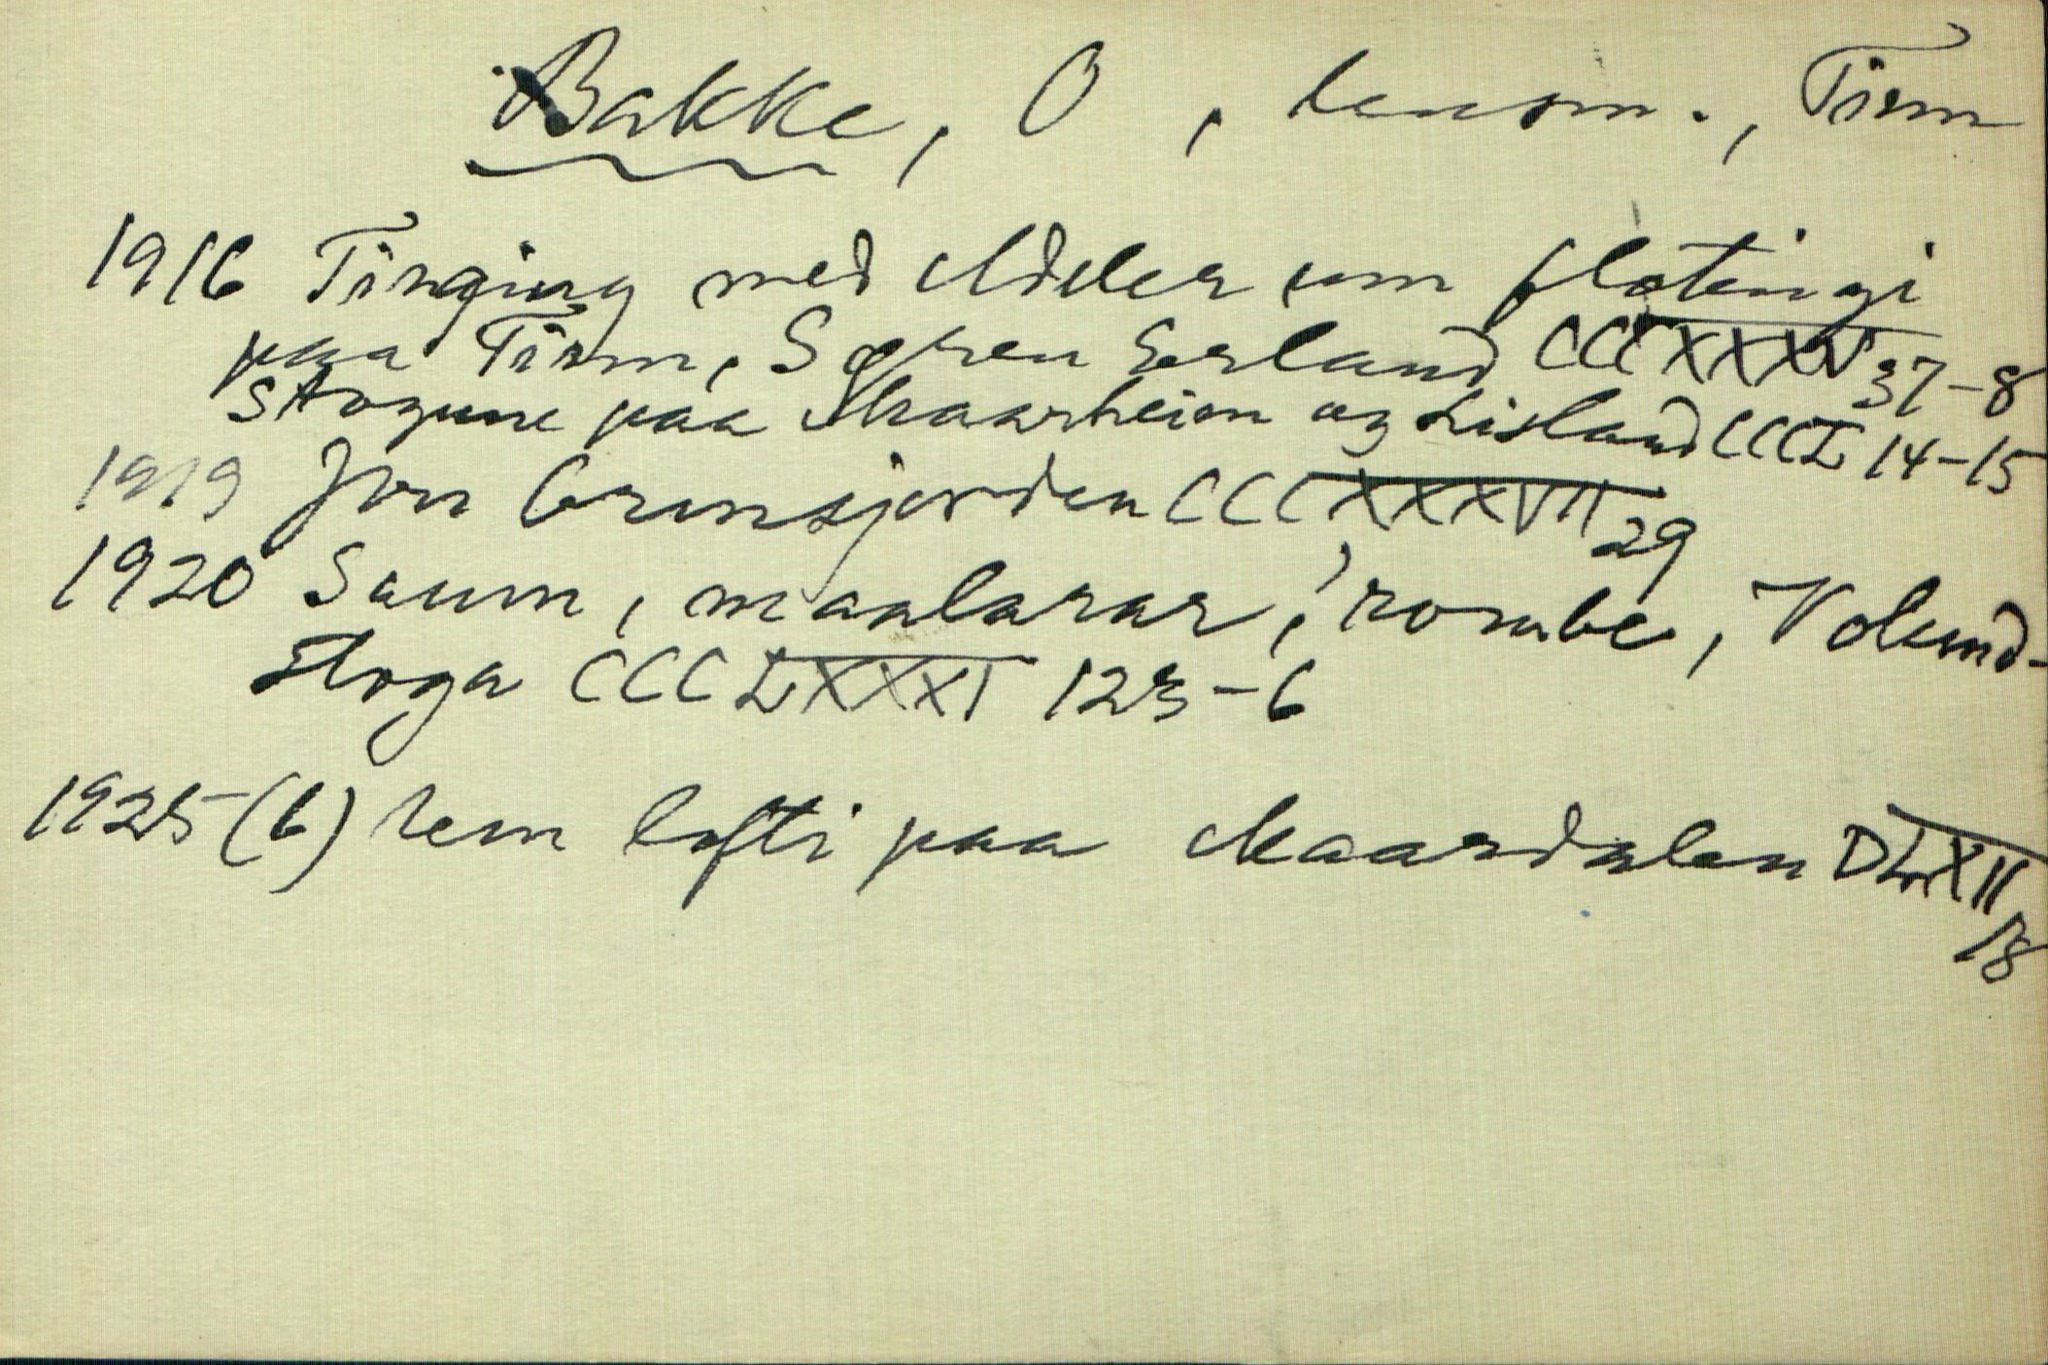 Bakke, O , lensm., Tinn
1916 Tinging med Adeler um flotingi
paa Tinn, Søren Erland CCCXXXV 37-8
stogune paa Skaarheim og Lisland CCCL 14-15
1919 Jon Grunsjorden CCCXXXVII 29
1920 Saum, maalarar, rombe, Volund-
stoga CCCLXXXI 125-6
1925 (6) lem lofti paa Maardalen DLXII
18